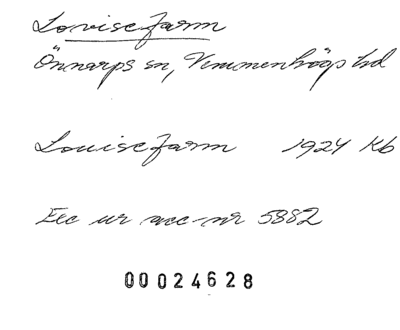 Louisefarm
Önnarps sn, Vemmenhögs hd
Louisefarm 1924 Kb
Exc ur acc-nr 5882
00024628